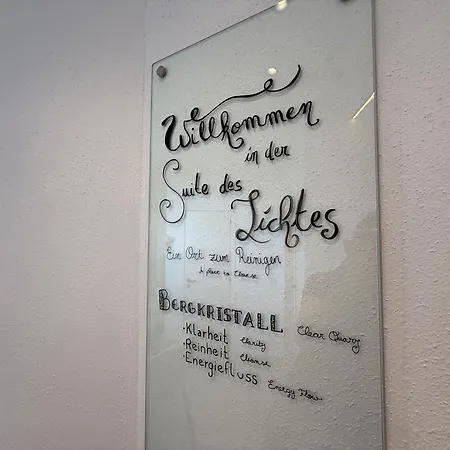 Willkommen
in der
Suite des
Lichtes
Ein Ort zum Reinigen
A place to Cleanse
BERGKRISTALL Clear Quarz
·Klarheit Clarity
·Reinheit Cleanse
·Energiefluss Energy Flow